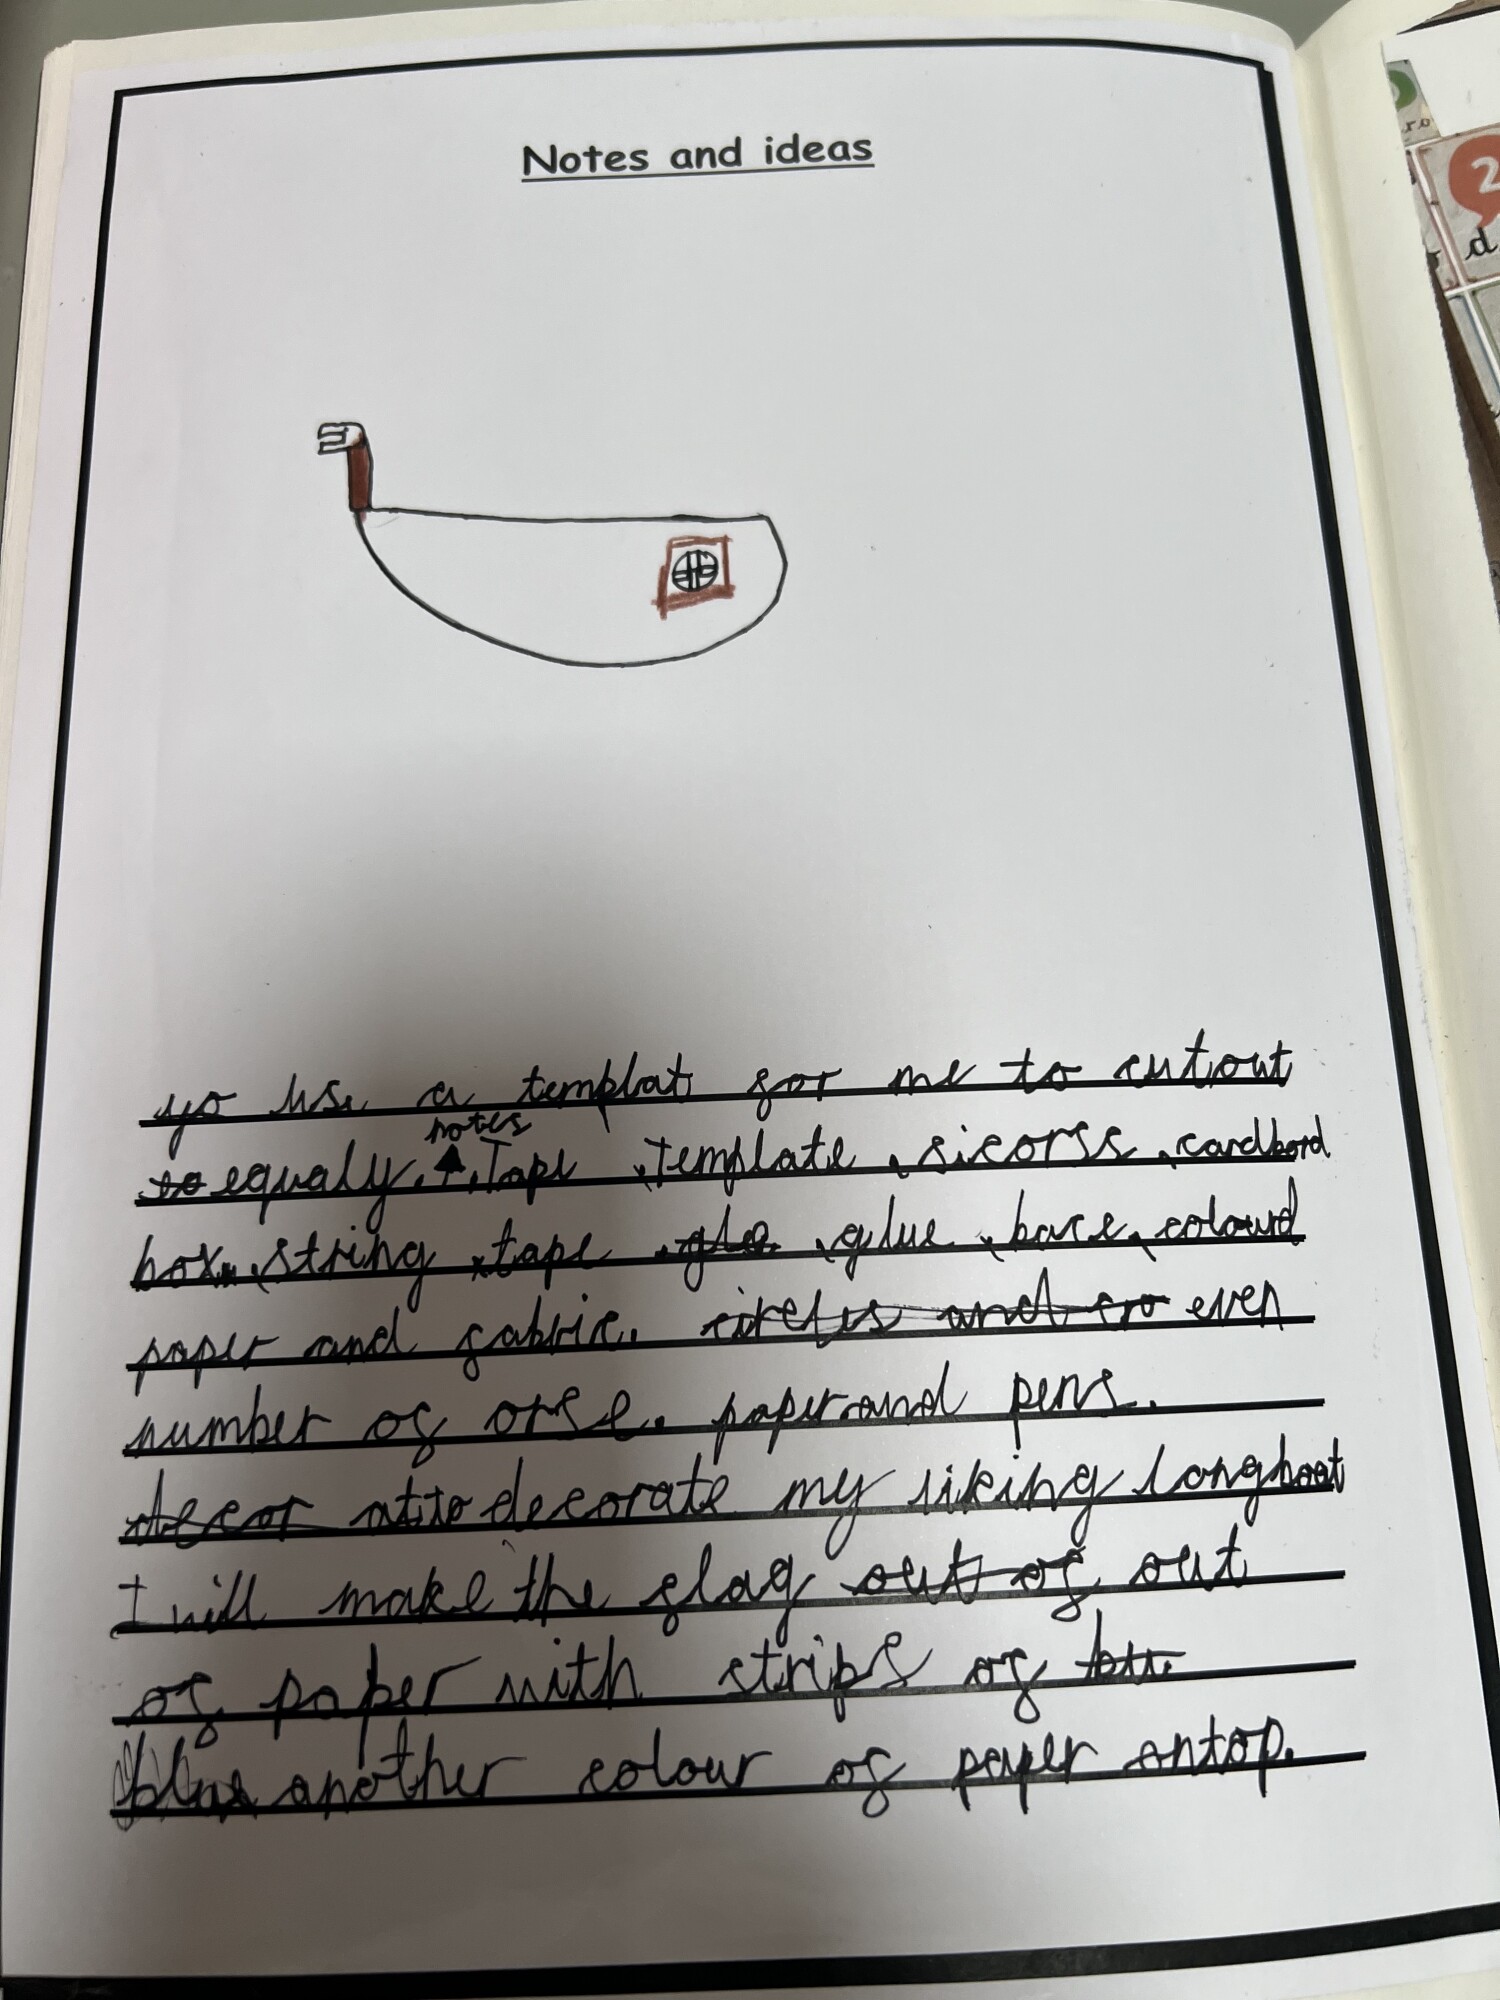 Notes and ideas
yo use a templat for me to cutout
notes
to equaly. Tape, template, sicorss, cardbord
box, string, tape glo, glue, base, colourd
paper and fabric. circles and even
number of orse. paper and pens.
decor at to decorate my viking longboat
I will make the flag out of out
of paper with strips of
another colour of paper ontop.
2
d